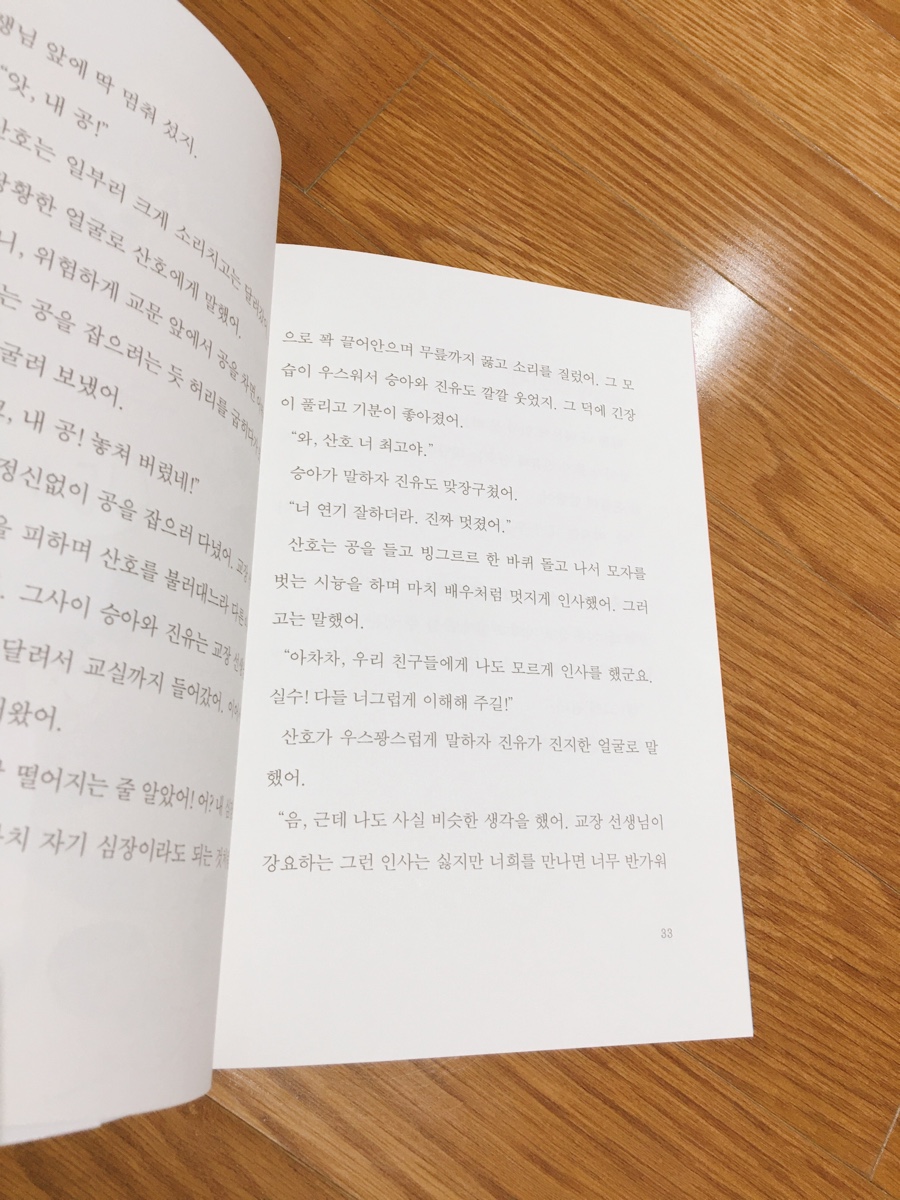 선생님 앞에 딱 멈춰 섰지.
“앗, 내 공!”
산호는 일부러 크게 소리치고는
당황한 얼굴로 산호에게 말했어.
위험하게 교문 앞에서 공을
공을 잡으려는 듯 허리를
굴려 보냈어.
내 공! 놓쳐 버렸네!”
정신없이 공을 잡으러 다녔어. 교장
피하며 산호를 불러대느라
그사이 승아와 진유는 교장
달려서 교실까지 들어갔어.
떨어지는 줄 알았어! 어? 내
자기 심장이라도 되는
으로 꽉 끌어안으며 무릎까지 꿇고 소리를 질렀어. 그 모
습이 우스워서 승아와 진유도 깔깔 웃었지. 그 덕에 긴장
이 풀리고 기분이 좋아졌어.
“와, 산호 너 최고야.”
승아가 말하자 진유도 맞장구쳤어.
“너 연기 잘하더라. 진짜 멋졌어.”
산호는 공을 들고 빙그르르 한 바퀴 돌고 나서 모자를
벗는 시늉을 하며 마치 배우처럼 멋지게 인사했어. 그러
고는 말했어.
“아차차, 우리 친구들에게 나도 모르게 인사를 했군요.
실수! 다들 너그럽게 이해해 주길!”
산호가 우스꽝스럽게 말하자 진유가 진지한 얼굴로 말
했어.
“음, 근데 나도 사실 비슷한 생각을 했어. 교장 선생님이
강요하는 그런 인사는 싫지만 너희를 만나면 너무 반가워
33